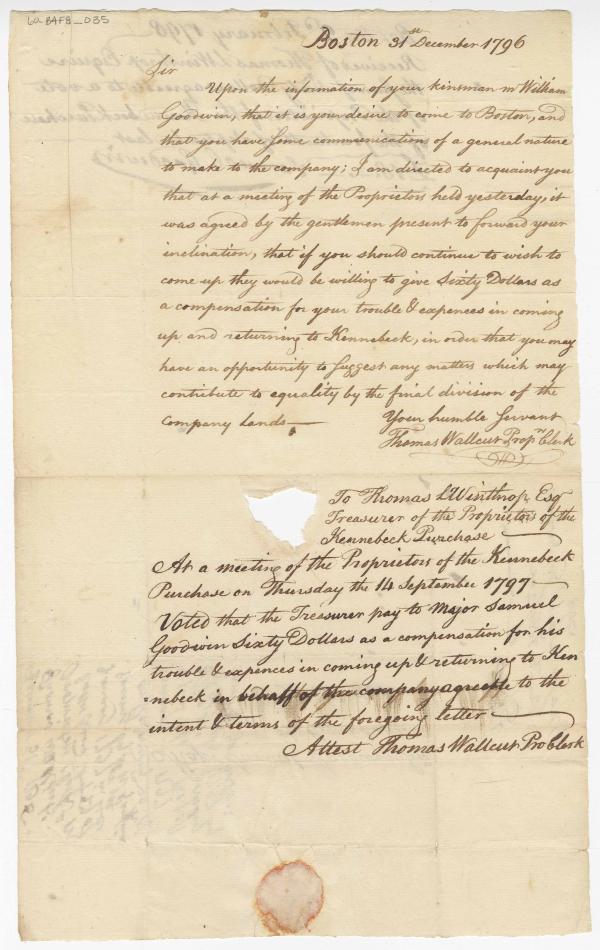 6a B4F8_035
Boston 31st December 1796
Sir
Upon the information of your kinsman mr William
Goodwin, that it is your desire to come to Boston, and
that you have some communication of a general nature
to make to the company; I am directed to acquaint you
that at a meeting of the Proprietors held yesterday, it
was agreed by the gentlemen present to forward your
inclination, that if you should continue to wish to
come up they would be willing to give Sixty Dollars as
a compensation for your trouble & expences in coming
up and returning to Kennebeck, in order that you may
have an opportunity to suggest any matters which may
contribute to equality by the final division of the
company lands—
Your humble Servant
Thomas Wallcut Propr Clerk
To Thomas L Winthrop Esqr
Treasurer of the Proprietors of the
Kennebeck Purchase
At a meeting of the Proprietors of the Kennebeck
Purchase on Thursday the 14 September 1797—
Voted that the Treasurer pay to Major Samuel
Goodwin Sixty Dollars as a compensation for his
trouble & expences in coming up & returning to Ken
=nebeck in behalf of the company agreeable to the
intent & terms of the foregoing letter—
Attest Thomas Wallcut Pro Clerk